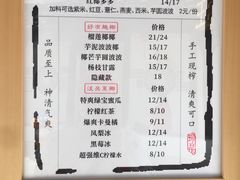 红椰多多 14/17
加料可选紫米、红豆、薏仁、燕麦、西米、芋圆波波 2元/份
好市趣椰 价格
榴莲椰椰 21/24
芋泥波波椰 14/17
椰芒芋圆波波 14/17
杨枝甘露 14/17
隐藏款 18
价格
特爽绿宝蜜瓜 12/14
柠檬红茶 8/10
爆爽卡曼橘 9/11
凤梨冰 12/14
黑莓冰 12/14
超强维C柠檬水 8/10
品质至上 神清气爽
手工现榨 清爽可口